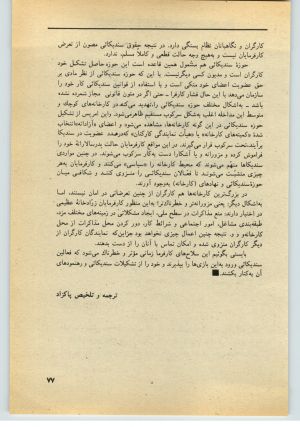 کارگران و نگاهبانان نظام بستگی دارد. در نتیجه حقوق سندیکائی مصون از تعرض
کارفرمایان نیست و بهیچ وجه حالت قطعی و کاملاً مسلم، ندارد.
حوزهٔ سندیکائی هم مشمول همین قاعده است این حوزه حاصل تشکیل خود
کارگران است و مدیون کسی دیگر نیست. با این که حوزه سندیکائی از نظر مادی بر
حق عضویت اعضای خود متکی است و با استفاده از قوانین سندیکائی کار خود را
سازمان می‌دهد، با این حال فشار کارفرما ـ حتی اگر در متون قانونی مجاز شمرده نشده
باشد ـ به‌اشکال مختلف حوزه سندیکائی را تهدید می‌کند. در کارخانه‌های کوچک و
متوسط این مداخله اغلب به‌شکل سرکوب مستقیم ظاهر می‌شود. واین امر پس از تشکیل
حوزه سندیکائی در این گونه کارخانه‌ها، مشاهده می‌شود و اعضای «آزادانه‌انتخاب
شدهٔ «کمیته‌های کارخانه» یا «هیأت نمایندگی کارکنان» که در صدد عضویت در سندیکا
برآیند، تحت سرکوب قرار می‌گیرند. در این مواقع کارفرمایان حالت پدرسالارانهٔ خود را
فراموش کرده و مزورانه و یا آشکارا دست به‌کار سرکوب می‌شوند. در چنین مواردی
سندیکاها متهم می‌شوند که محیط کارخانه را «سیاسی» می‌کنند. و کارفرمایان به‌هر
چیزی متشبّث می‌شوند تا فعّالان سندیکائی را منزوی کنند و شکافی میان
حوزهٔ سندیکائی و نهادهای (کارخانه) به‌وجود آورند.
در بزرگ‌ترین کارخانه‌ها هم کارگران از چنین تعرضاتی در امان نیستند، اما
به‌اشکال دیگر: یعنی مزورانه‌تر و خطرناک‌تر! به‌این منظور کارفرمایان زرادخانهٔ عظیمی
در اختیار دارند: منع مذاکرات در سطح ملی، ایجاد مشکلاتی در زمینه‌های مختلف مزد،
طبقه‌بندی مشاغل، امور اجتماعی و شرائط کار، دور کردن محل مذاکرات از محل
کارخانه‌و و و. نتیجه چنین اعمال چیزی نخواهد بود جزاین‌که نمایندگان کارگران از
دیگر کارگران منزوی شده و امکان تماس با آنان را از دست بدهند.
بایستی بگوئیم این سلاح‌های کارفرما زمانی مؤثر و خطرناک می‌شود که فعالین
سندیکائی ورود به‌این بازی‌ها را بپذیرند و خود را از تشکیلات سندیکائی و رهنمودهای
آن به‌کنار بکشند.
ترجمه و تلخیص پاکزاد
۷۷